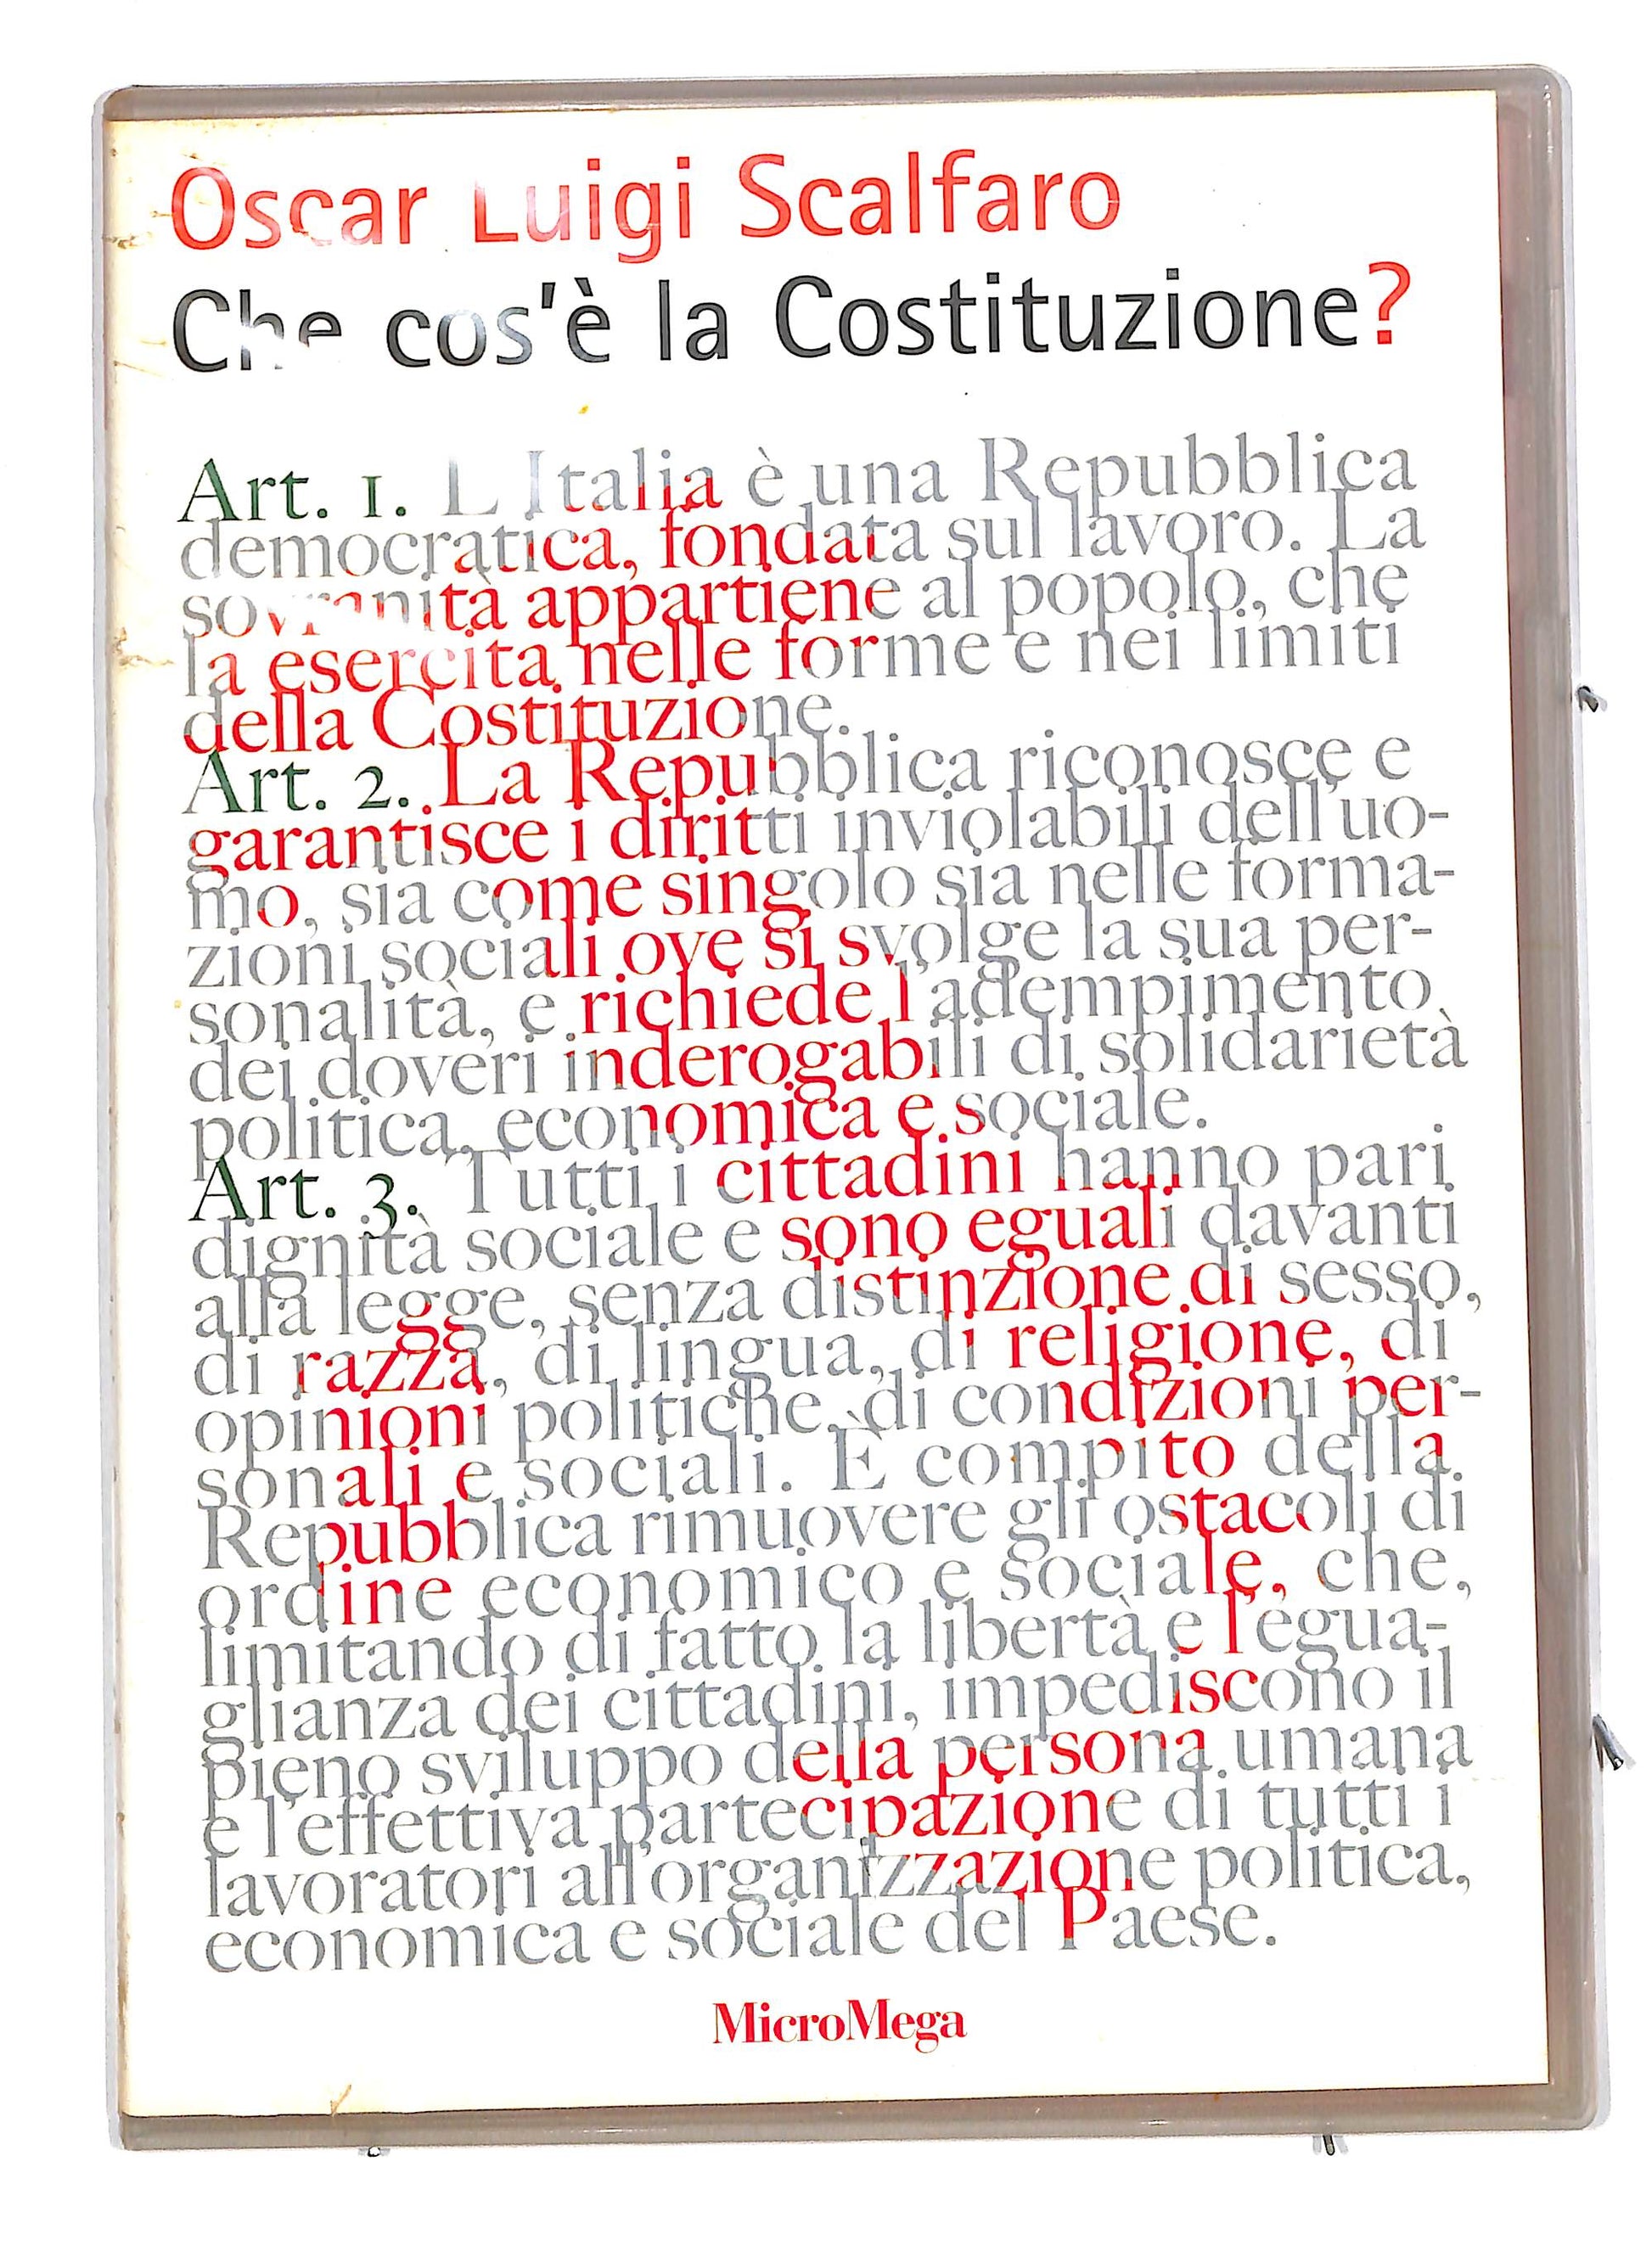 Oscar Luigi Scalfaro
Che cos'è la Costituzione?
Art. 1. L'Italia è una Repubblica
democratica, fondata sul lavoro. La
sovranità appartiene al popolo, che
la esercita nelle forme e nei limiti
della Costituzione.
Art. 2. La Repubblica riconosce e
garantisce i diritti inviolabili dell'uo-
mo, sia come singolo sia nelle forma-
zioni sociali ove si svolge la sua per-
sonalità, e richiede l'adempimento
dei doveri inderogabili di solidarietà
politica, economica e sociale.
Art. 3. Tutti i cittadini hanno pari
dignità sociale e sono eguali davanti
alla legge, senza distinzione di sesso,
di razza, di lingua, di religione, di
opinioni politiche, di condizioni per-
sonali e sociali. È compito della
Repubblica rimuovere gli ostacoli di
ordine economico e sociale, che,
limitando di fatto la libertà e l'egua-
glianza dei cittadini, impediscono il
pieno sviluppo della persona umana
e l'effettiva partecipazione di tutti i
lavoratori all'organizzazione politica,
economica e sociale del Paese.
MicroMega